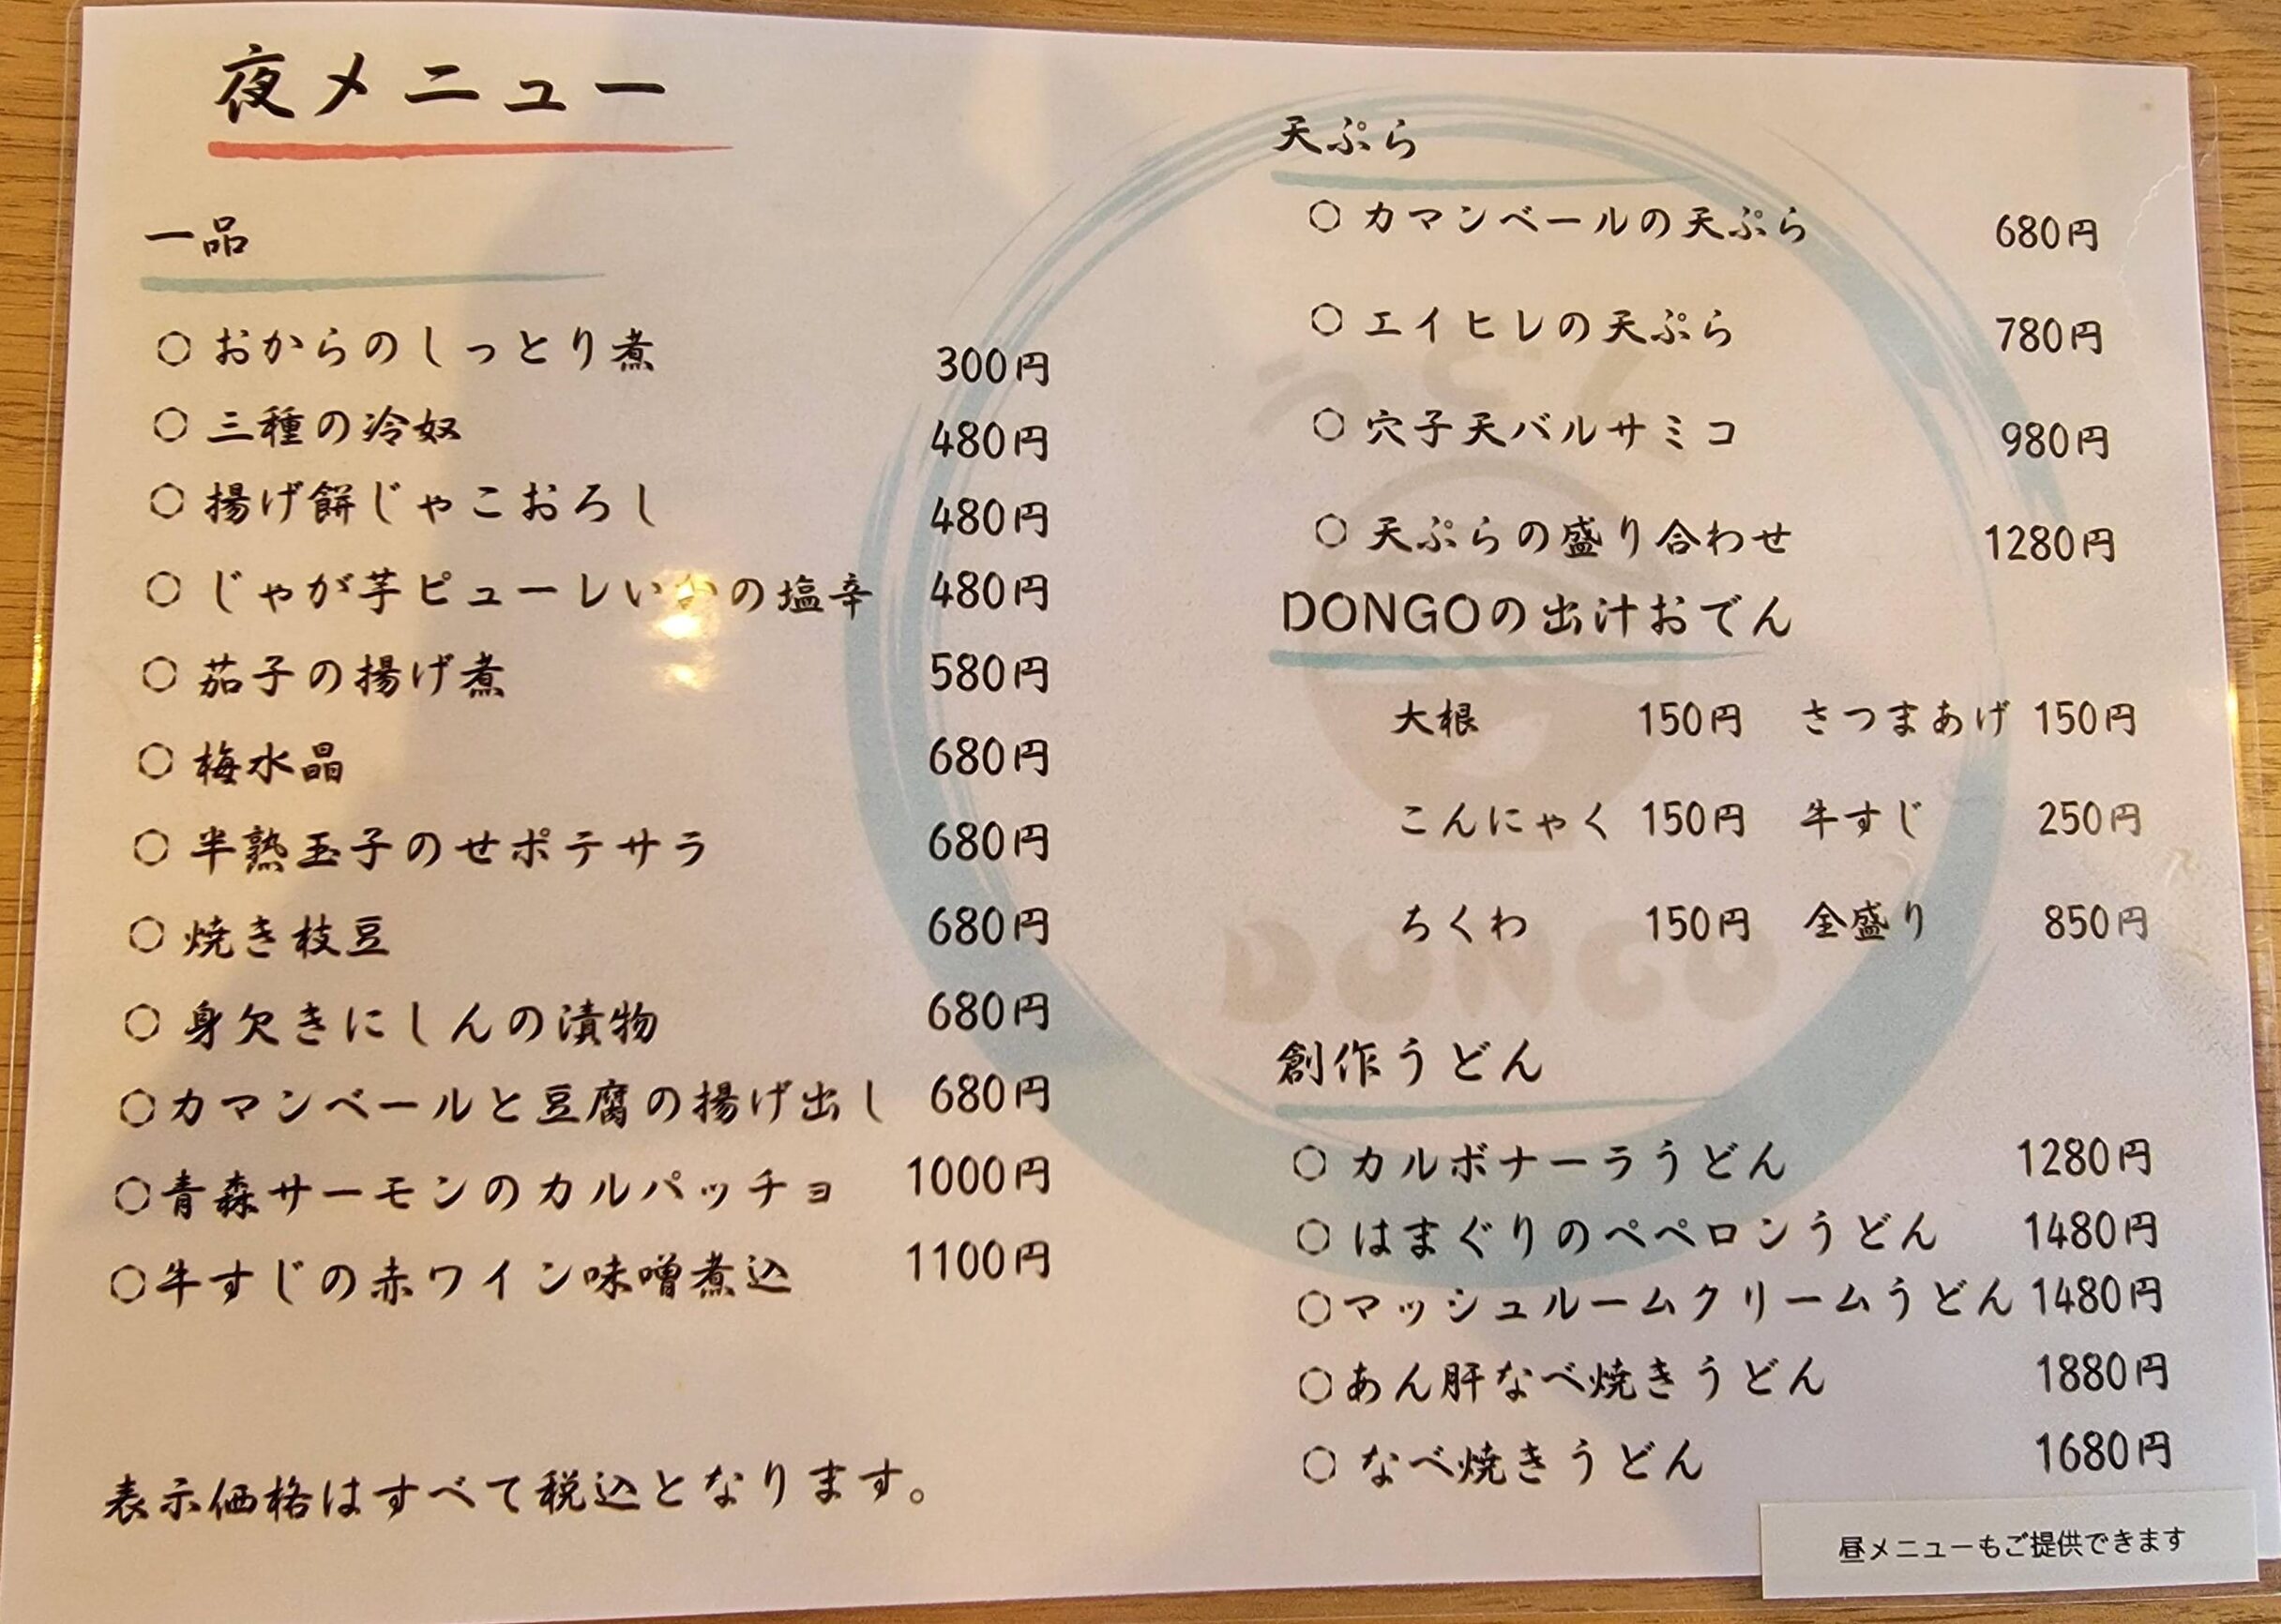 夜メニュー
一品
○ おからのしっとり煮 300円
○ 三種の冷奴 480円
○ 揚げ餅じゃこおろし 480円
○ じゃが芋ピューレいかの塩辛 480円
○ 茄子の揚げ煮 580円
○ 梅水晶 680円
○ 半熟玉子のせポテサラ 680円
○ 焼き枝豆 680円
○ 身欠きにしんの漬物 680円
○カマンベールと豆腐の揚げ出し 680円
○青森サーモンのカルパッチョ 1000円
○牛すじの赤ワイン味噌煮込 1100円
表示価格はすべて税込となります。
天ぷら
○ カマンベールの天ぷら 680円
○ エイヒレの天ぷら 780円
○ 穴子天バルサミコ 980円
○ 天ぷらの盛り合わせ 1280円
DONGOの出汁おでん
大根 150円 さつまあげ 150円
こんにゃく 150円 牛すじ 250円
ちくわ 150円 全盛り 850円
創作うどん
○ カルボナーラうどん 1280円
○ はまぐりのペペロンうどん 1480円
○マッシュルームクリームうどん 1480円
○あん肝なべ焼きうどん 1880円
○ なべ焼きうどん 1680円
昼メニューもご提供できます
うどん
DONGO